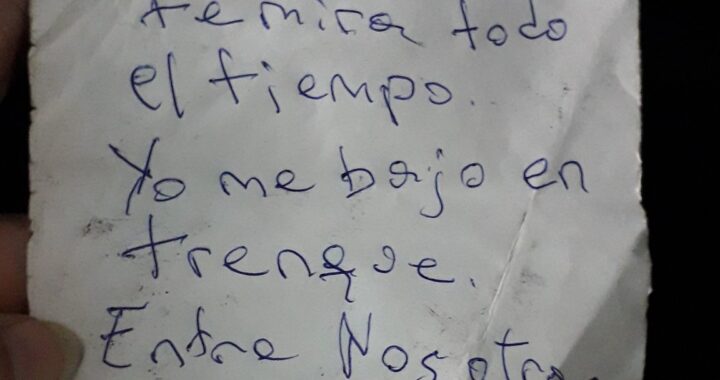 te mira todo
el tiempo.
Yo me bajo en
trenque.
Entre Nosotro